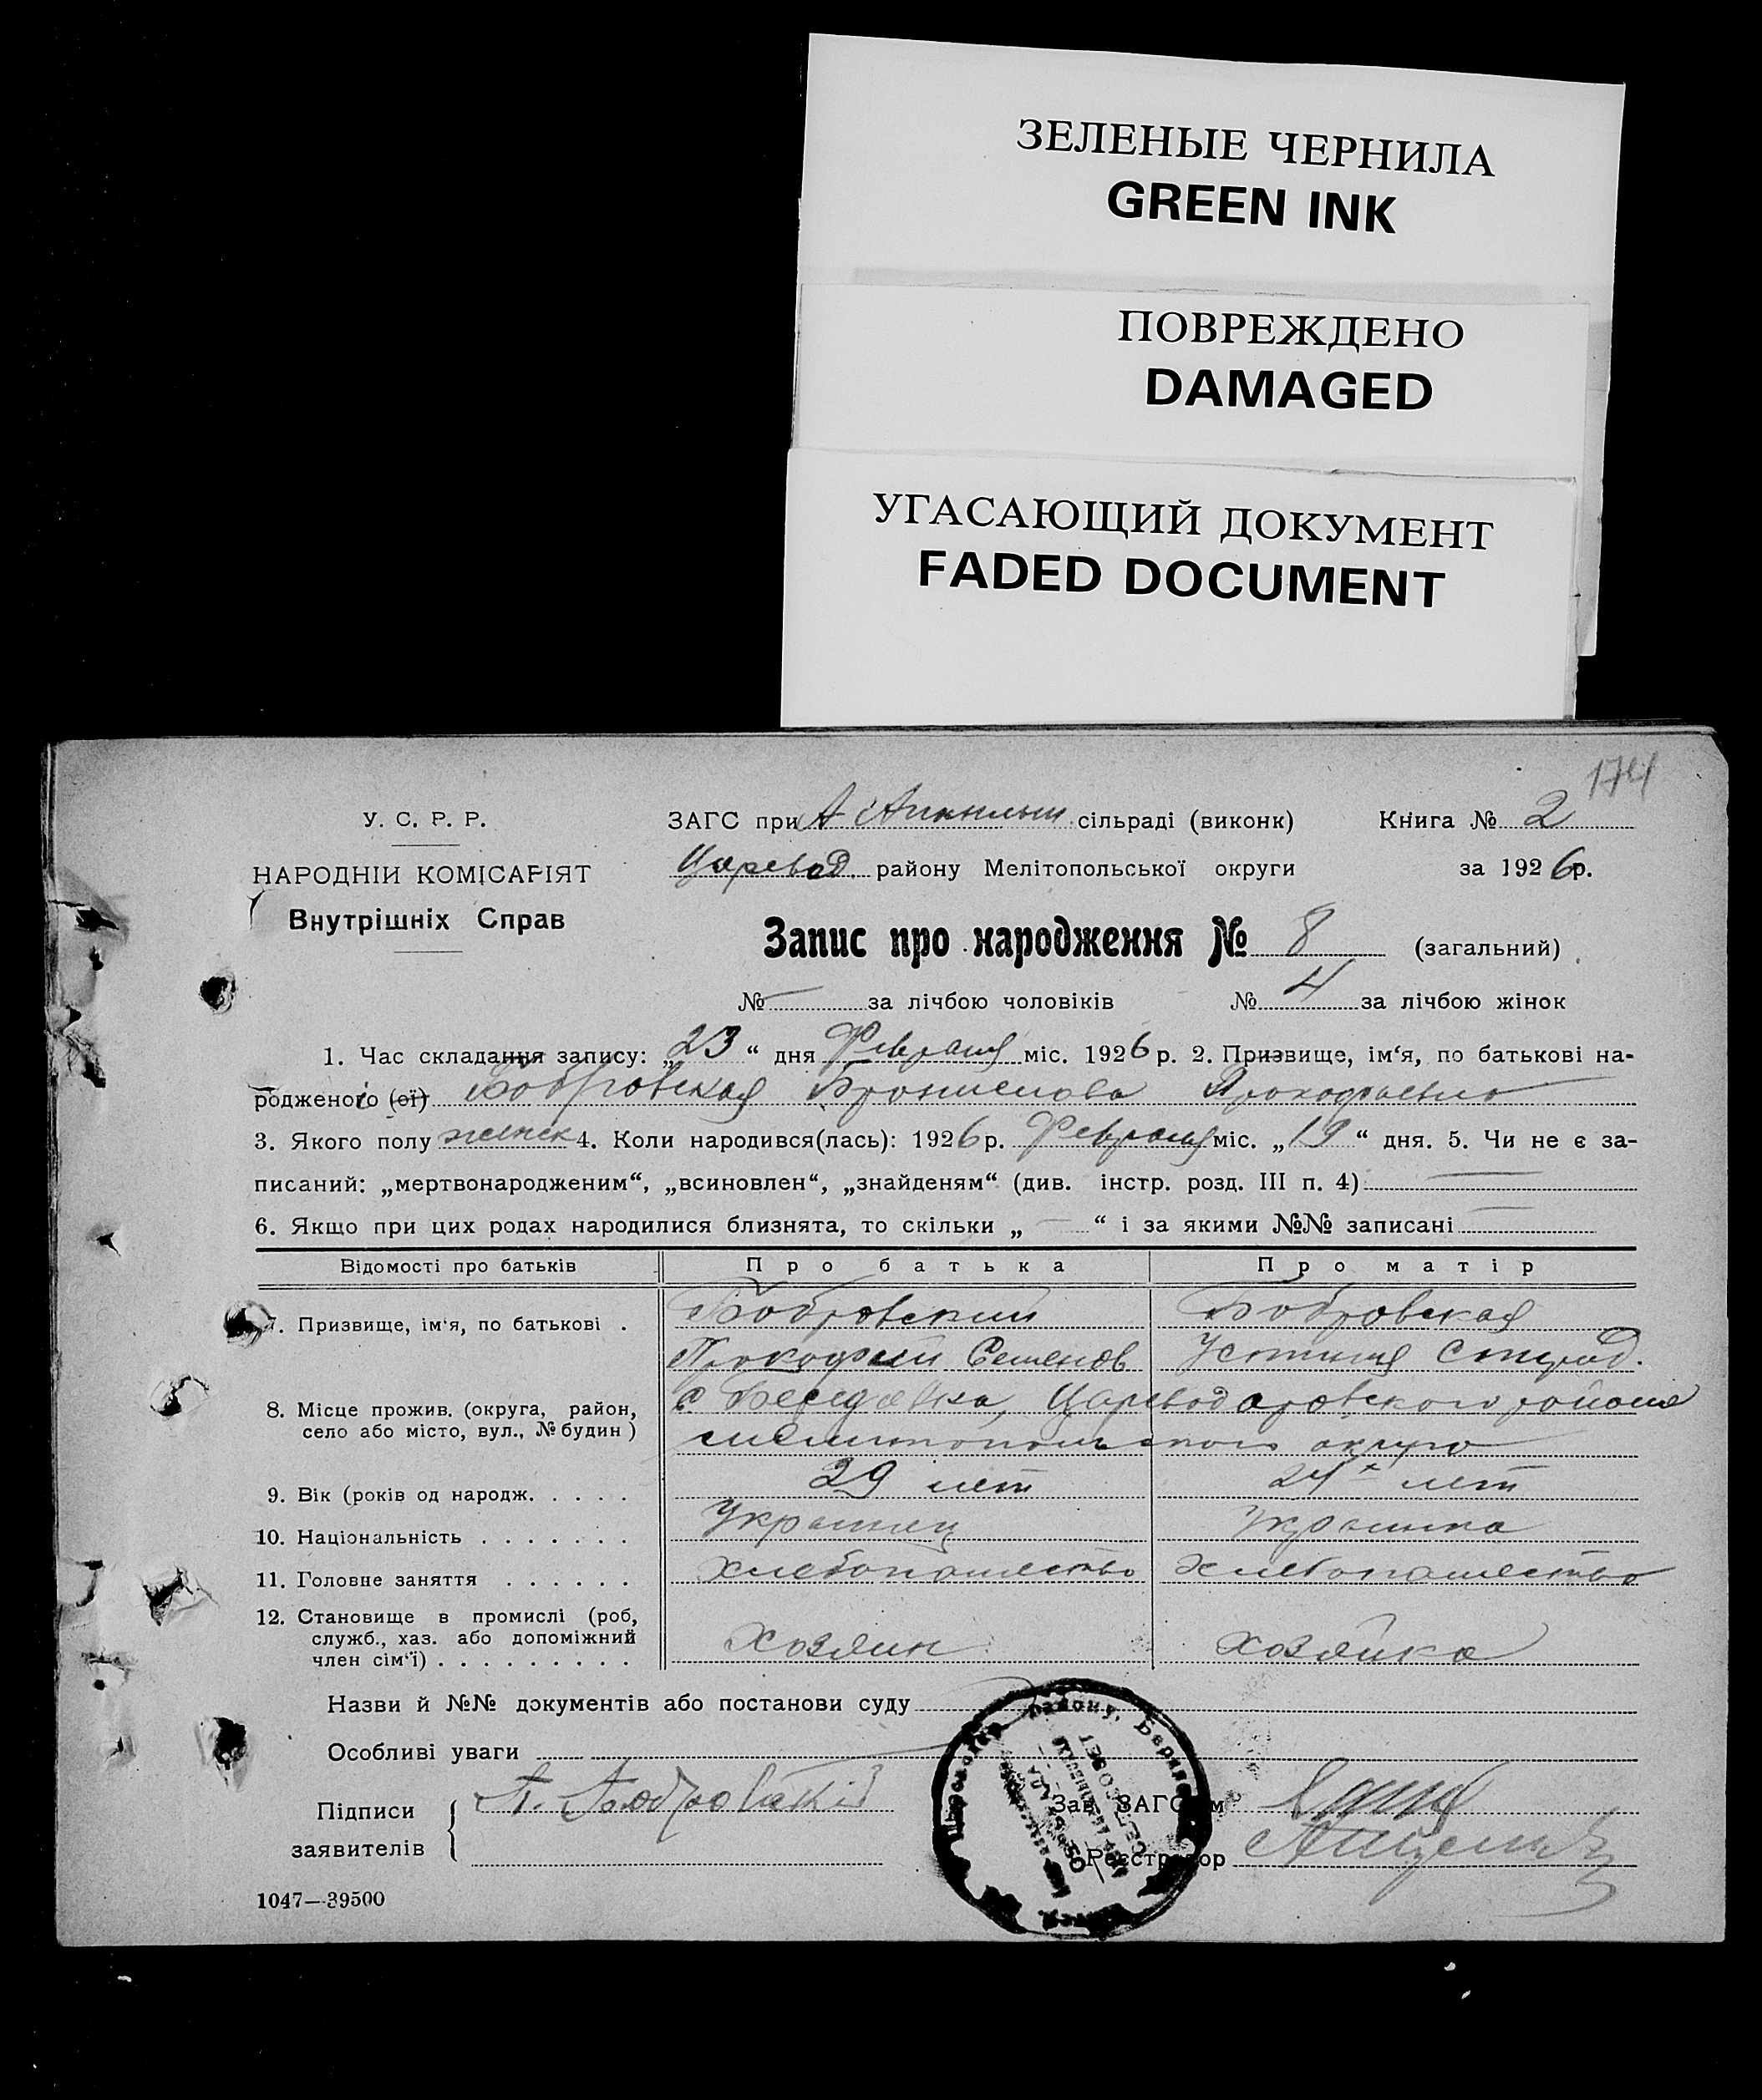 ЗЕЛЕНЫЕ ЧЕРНИЛА
GREEN INK
ПОВРЕЖДЕНО
DAMAGED
УГАСАЮЩИЙ ДОКУМЕНТ
FADED DOCUMENT
174
У. С. Р. Р.
НАРОДНІЙ КОМІСАРІЯТ
Внутрішніх Справ
ЗАГС при сільраді (виконк) Книга № 2
Царевод. району Мелітопольської округи за 1926р.
Запис про народження № 8 (загальний)
№ — за лічбою чоловіків № 4 за лічбою жінок
1. Час складання запису: „23“ дня Февраля міс. 1926 р. 2. Призвище, ім‘я, по батькові на-
родженого (ої) Бобровская Бронислова Прокофьевна
3. Якого полу женск 4. Коли народився(лась): 1926 р. Февраля міс. „19“ дня. 5. Чи не є за-
писаний: „мертвонародженим“, „всиновлен“, „знайденям“ (див. інстр. розд. III п. 4) —
6. Якщо при цих родах народилися близнята, то скільки „ — “ і за якими №№ записані —
Відомості про батьків Про батька Про матір
7. Призвище, ім‘я, по батькові . Бобровский Бобровская
Прокофий Семенов Устиния
8. Місце прожив. (округа, район, село або місто, вул., № будин) с. Цареводаровского района
Мелитопольского округа
9. Вік (років од народж. . . . . 29 лет 24 лет
10. Національність . . . . . . . Украинец Украинка
11. Головне заняття . . . . . . Хлебопашество Хлебопашество
12. Становище в промислі (роб,
служб., хаз. або допоміжний
член сім‘ї) . . . . . . . . . Хозяин Хозяйка
Назви й №№ документів або постанови суду
Особливі уваги
Підписи П. Бобровский Зав. ЗАГС‘ом
заявителів Реєстратор
району, Бердян
1047—39500